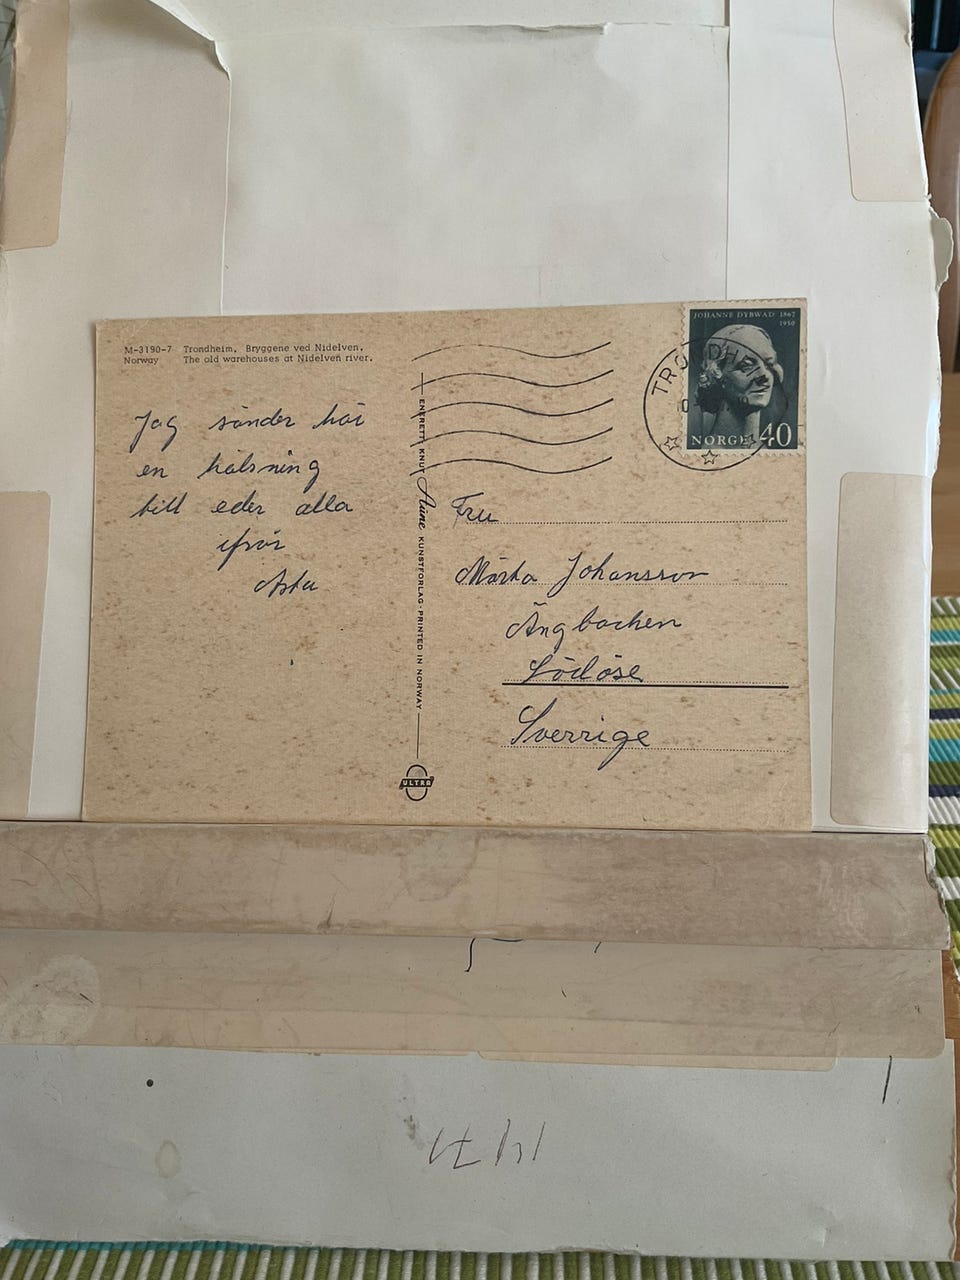 M-3190-7 Trondheim. Bryggene ved Nidelven.
Norway The old warehouses at Nidelven river.
Jag sänder här
en hälsning
till eder alla
ifrån
Asta
ENERETT KNUT Aune KUNSTFORLAG · PRINTED IN NORWAY
ULTRA
JOHANNE DYBWAD 1867
1950
TRONDHEIM
NORGE 40
Fru
Märta Johansson
Ängbacken
Lödöse
Sverrige